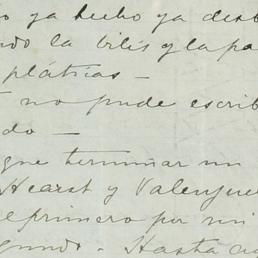 ya hecho ya desb
ndo la bilis y la pa
pláticas —
no pude escrib
do —
que terminar mi
Hearst y Valenzue
el primero por mi
gundo - Hasta